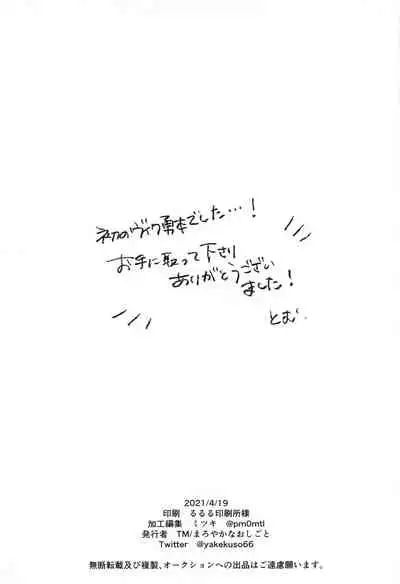 初のヴィク勇本でした…!
お手に取って下さり
ありがとうござい
ました!
とむ.
2021/4/19
印刷　るるる印刷所様
加工編集　ミツキ　@pm0mtl
発行者　TM/まろやかなおしごと
Twitter　@yakekuso66
無断転載及び複製、オークションへの出品はご遠慮願います。